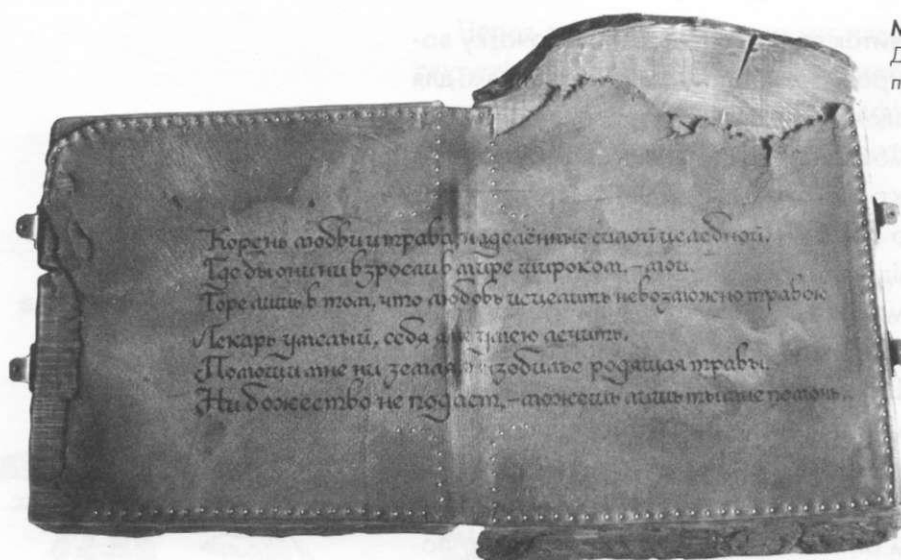 М
Д
п
Корень любви и трава, наделённые силой целебной,
Где бы они ни взросли в мире широком, – мои.
Горе лишь в том, что любовь исцелить невозможно травою
Лекарь умелый, себя я не умею лечить.
Помощи мне ни земля, в изобилье родящая травы,
Ни божество не подаст, – можешь лишь ты мне помочь..